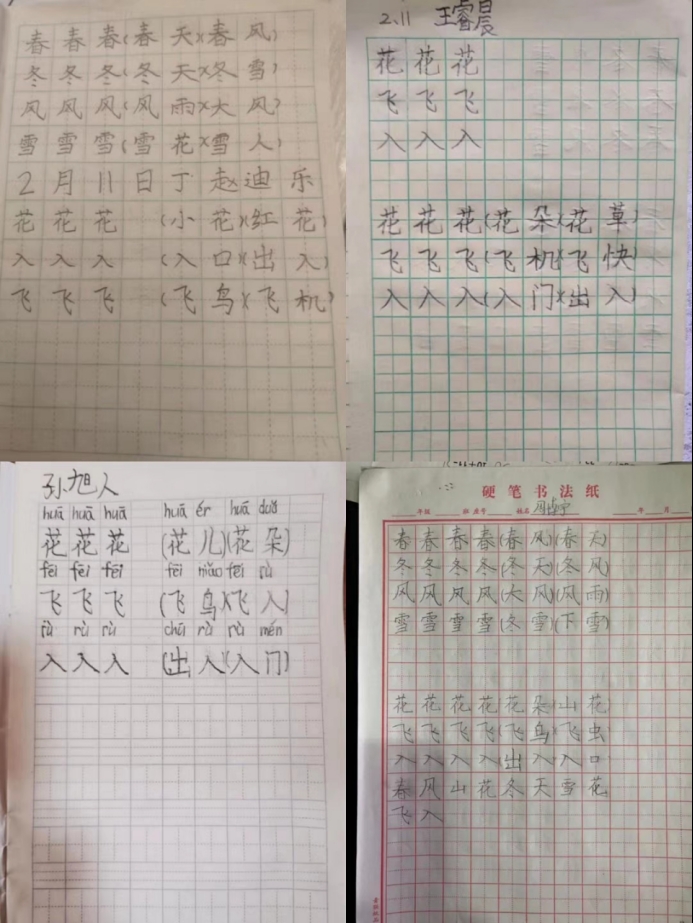 春春春(春天)(春风)
冬冬冬(冬天)(冬雪)
风风风(风雨)(大风)
雪雪雪(雪花)(雪人)
2月11日丁赵迪乐
花花花 (小花)(红花)
入入入 (入口)(出入)
飞飞飞 (飞鸟)(飞机)
2.11 王睿晨
花花花
飞飞飞
入入入
花花花(花朵)(花草)
飞飞飞(飞机)(飞快)
入入入(入门)(出入)
孙旭人
huā huā huā huā ér huā duǒ
花花花 (花儿)(花朵)
fēi fēi fēi fēi niǎo fēi rù
飞飞飞 (飞鸟)(飞入)
rù rù rù chū rù rù mén
入入入 (出入)(入门)
硬笔书法纸
年级 班 座号 姓名 年 月
春春春春(春风)(春天)
冬冬冬冬(冬天)(冬风)
风风风风(大风)(风雨)
雪雪雪雪(冬雪)(下雪)
花花花花(花朵)(山花)
飞飞飞飞(飞鸟)(飞虫)
入入入入(出入)入口
春风山花冬天雪花
飞入